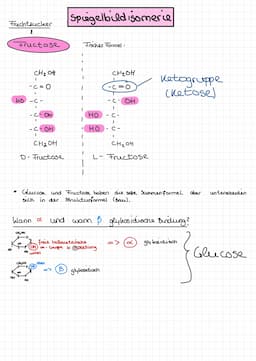 Spiegelbildisomerie
Fruchtzucker
Fructose
Fischer Formel:
CH₂OH
C=O
HO -C-
-C-OH
-C-OH
CH₂OH
D-Fructose
CH₂OH
-C=O
-C-OH
HO -C-
HO -C-
CH₂OH
L-Fructose
Ketogruppe
(Ketose)
• Glucose und Fructose haben die selbe Summenformel aber unterscheiden
sich in der Strukturformel (Bau).
Wann α und wann β glykosidische Bindung?
=> α glykosidisch
=> β glykosidisch
Glucose